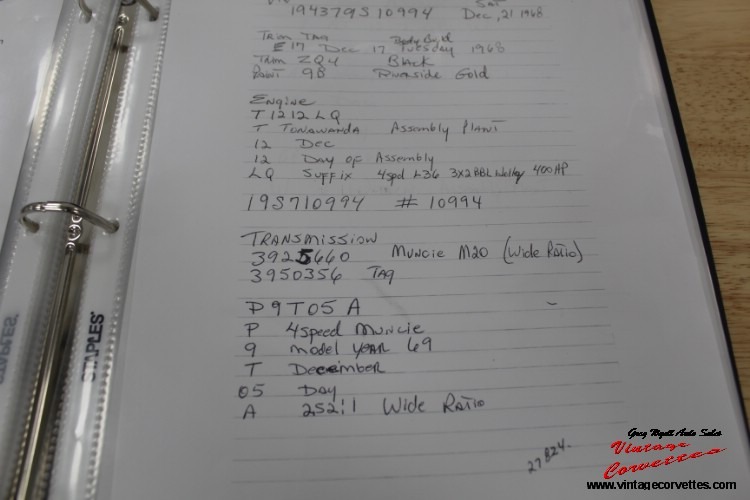 SAT
194379S10994 Dec, 21 1968
Trim Tag Body Build
E17 Dec 17 Tuesday 1968
Trim ZQ4 Black
Paint 98 Riverside Gold
Engine
T1212LQ
T Tonawanda Assembly Plant
12 Dec
12 Day of Assembly
LQ Suffix 4spd L36 3x2BBL Holley 400HP
19S710994 # 10994
Transmission
3925660 Muncie M20 (Wide Ratio)
3950356 Tag
P9T05A
P 4speed Muncie
9 model year 69
T December
05 Day
A 252:1 Wide Ratio
27824
STAPLES
STAPLES
Greg Wyatt Auto Sales
Vintage
Corvettes
www.vintagecorvettes.com